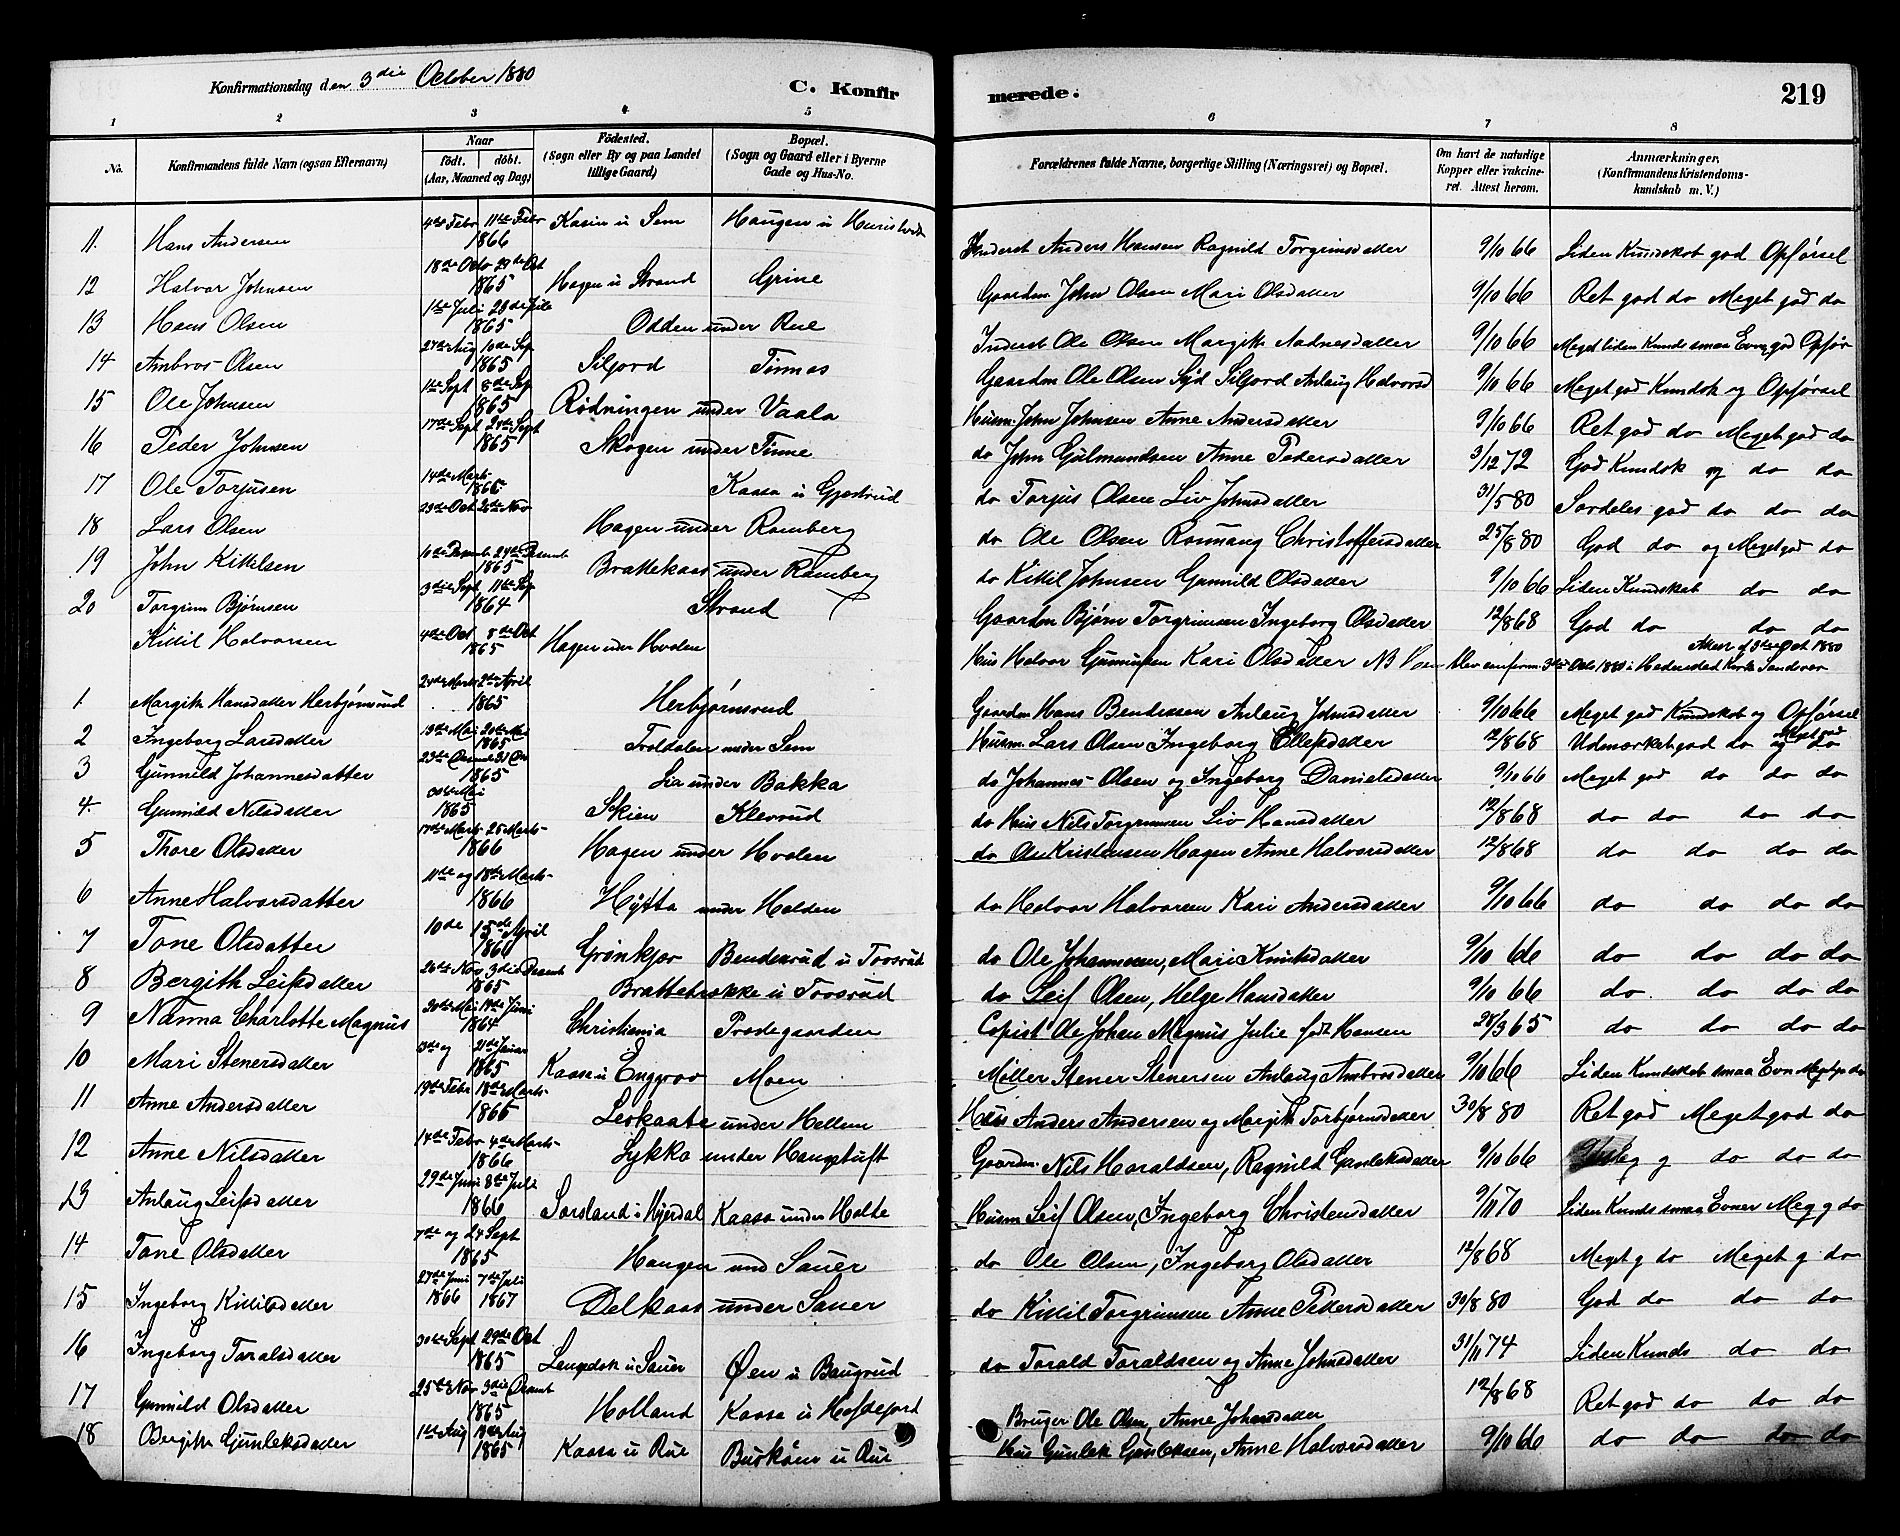 Konfirmationsdag den 3die October 1880
C. Konfirmerede.
219
1 2 3 4 5 6 7 8
No. Konfirmandens fulde Navn (ogsaa Efternavn) Naar født. døbt. (Aar, Maaned og Dag) Fødested. (Sogn eller By og paa Landet tillige Gaard) Bopæl. (Sogn og Gaard eller i Byerne Gade og Hus-No. Forældrenes fulde Navne, borgerlige Stilling (Næringsvei) og Bopæl. Om havt de naturlige Kopper eller vakcineret. Attest herom. Anmærkninger. (Konfirmandens Kristendomskundskab m. V.)
11. Hans Andersen 4de Febr 11te Febr 1866 Kasin u Sem Haugen u Anders Hansen Ragnild Torgrimsdatter 9/10 66 Liden Kundskab god Opførsel
12 Halvor Johnsen 18de Octo 29de Oct 1865 Hagen u Strand Grine Gaardm John Olsen Mari Olsdatter 9/10 66 Ret god do Meget god do
13 Hans Olsen 1ste Juli 23de Juli 1865 Odden under Rue Inderst Ole Olsen Margith Aadnesdatter 9/10 66 Meget liden Kunds smaa Evne god Opfør
14 Ambros Olsen 27de Aug 10de Sep 1865 Siljord Tinnes Gaardm Ole Olsen Sejd Siljord Anlaug Halvorsd 9/10 66 Meget god Kundsk og Opførsel
15 Ole Johnsen 1ste Sept 8de Sep 1865 Rødningen under Vaala Husm John Johnsen Anne Andersdatter 9/10 66 Ret god do Meget god do
16 Peder Johnsen 17de Sept 24de Sept 1865 Skogen under Tinne do John Gulmundsen Anne Pedersdatter 3/12 72 God Kundsk og do do
17 Ole Torjusen 14de Marts 1866 Kaasa u Gjestrud do Torjus Olsen Liv Johnsdatter 31/5 80 Særdeles god do do do
18 Lars Olsen 23de Oct 2de Nov Hagen under Ramberg do Ole Olsen Rounaug Christoffersdatter 25/8 80 God do og Meget god do
19 John Kittelsen 10de Decemb 24de Decemb 1865 Brattekaas under Ramberg do Kittil Johnsen Gunnild Olsdatter 9/10 66 Liden Kundskab do do
20 Torgrim Bjørnsen 3die Sept 11te Sep 1864 Strand Gaardm Bjørn Torgrimsen Ingeborg Olsdatter 12/8 68 God do do do
Kittil Halvorsen 4de Oct 8de Oct 1865 Hagen under Hvalen Hus Halvor Gunnufsen Kari Olsdatter NB Han blev confirm 3die Octo 1880 i Hedenstad Kirke Sandsvær
Attest af 3die Oct 1880
1. Margith Hansdatter Herbjørnsrud 24de Marts 2de April 1865 Herbjørnsrud Gaardm Hans Bendixsen Anlaug Johnsdatter 9/10 66 Meget god Kundskab og Opførsel
2 Ingeborg Larsdatter 19de Mai 20de Mai 1865 Troldalen under Sem Husm. Lars Olsen Ingeborg Ellefsdatter 12/8 68 Udmærket god do og Meget god do
3 Gunnild Johannesdatter 23de Decemb 31 Dec 1865 Lia under Bakka do Johannes Olsen og Ingeborg Danielsdatter 9/10 66 Meget god do do do
4. Gunnild Nilsdatter Mai 1865 Skien Klevrud do Hus Nils Torgrimsen Liv Hansdatter 12/8 68 do do do do
5 Thore Olsdatter 17de Marts 25 Marts 1866 Hagen under Hvalen do Ole Kristensen Hagen Anne Halvorsdatter 12/8 68 do do do do
6 Anne Halvorsdatter 11de og 18de Marts 1866 Hytta under Holden do Halvor Halvorsen Kari Andersdatter 9/10 66 do do do do
7 Tone Olsdatter 10de 15de April 1866 Grönkjær Bendiksrud u Toosrud do Ole Johannesen, Mari Knutsdatter 9/10 66 do do do do
8 Bergith Leifsdatter 26de Nov 3die Decemb 1865 Brattebrokke u Toosrud do Leif Olsen, Helge Hansdatter 9/10 66 do do do do
9 Nanna Charlotte Magnus 20de Mai 19de Juni 1864 Christiania Prestegaarden Copist Ole Johan Magnus Julie født Hansen 24/3 65 do do do do
10 Mari Stenersdatter 13de og 21de Januar 1865 Kaasa u Enggrav Moen Møller Stener Stenersen Anlaug Ambrosdatter 9/10 66 Liden Kundskab smaa Evn Meget g do
11 Anne Andersdatter 19de Febr 18de Marts 1866 Leskaabe under Hellem Hus Anders Andersen og Margith Torbjørnsdatter 30/8 80 Ret god Meget god do
12 Anne Nilsdatter 14de Febr 4de Marts 1866 Lykka under Haugtuft Gaardm Nils Haraldsen, Ragnild Gunleksdatter 9/10 66 g do do do
13 Anlaug Leifsdatter 29de Juni 8de Juli 1866 Sørsland i Hjerdal Kaasa under Holte Husm Leif Olsen, Ingeborg Christensdatter 9/11 70 Liden Kunds smaa Evner Meg g do
14 Tone Olsdatter 7de og 24 Sept 1865 Haugen und Sauer do Ole Olsen, Ingeborg Olsdatter 12/8 68 Meget g do Meget g do
15 Ingeborg Kittilsdatter 27de Juni 1866 7de Juli 1867 Delkaas under Sauer do Kittil Torgrimsen Anne Pedersdatter 30/8 80 God do do do
16 Ingeborg Taralsdatter 30de Sept 29de Oct 1865 Langedok u Sauer Øen u Baugrud do Tarald Taraldsen og Anne Johnsdatter 31/11 74 Liden Kunds do do
17 Gunnild Olsdatter 25de Nov 3die Decemb 1865 Holland Kaasa u Hofdejord Bruger Ole Olsen, Anne Johansdatter 12/8 68 Ret god do do do
18 Bergith Gunleksdatter 1ste Aug 13de Aug 1865 Kaasa u Rue Buskåsn u Rue Hus Gunlek Gunleksen, Anne Halvorsdatter 9/10 66 do do do do